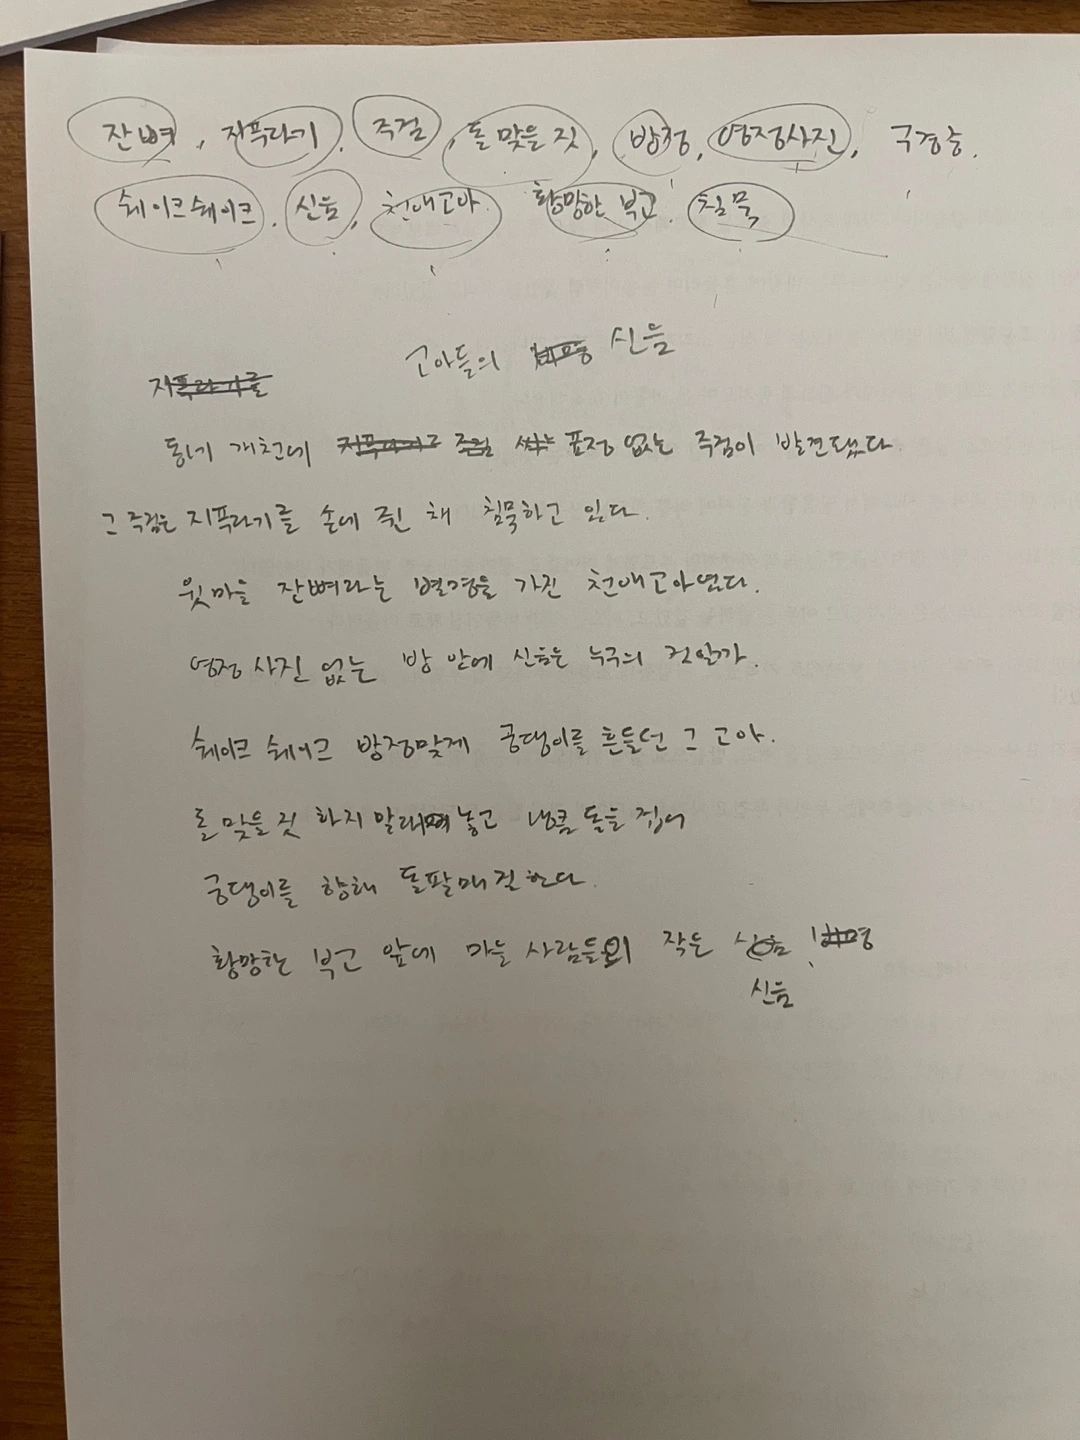 잔뼈, 지푸라기, 주검, 돌 맞을 짓, 방정, 영정사진, 구경중.
쉐이크쉐이크, 신음, 천애고아. 황망한 부고. 침묵
고아들의 신음
지푸라기를
동네 개천에 지푸라기로 주검 표정 없는 주검이 발견됐다.
그 주검은 지푸라기를 손에 쥔 채 침묵하고 있다.
윗마을 잔뼈라는 별명을 가진 천애고아였다.
영정사진 없는 방 안에 신음은 누구의 것일까.
쉐이크 쉐이크 방정맞게 궁댕이를 흔들던 그 고아.
돌 맞을 짓 하지 말래 놓고 냉큼 돌을 집어
궁댕이를 향해 돌팔매질한다.
황망한 부고 앞에 마을 사람들의 작은 신음 비명
신음